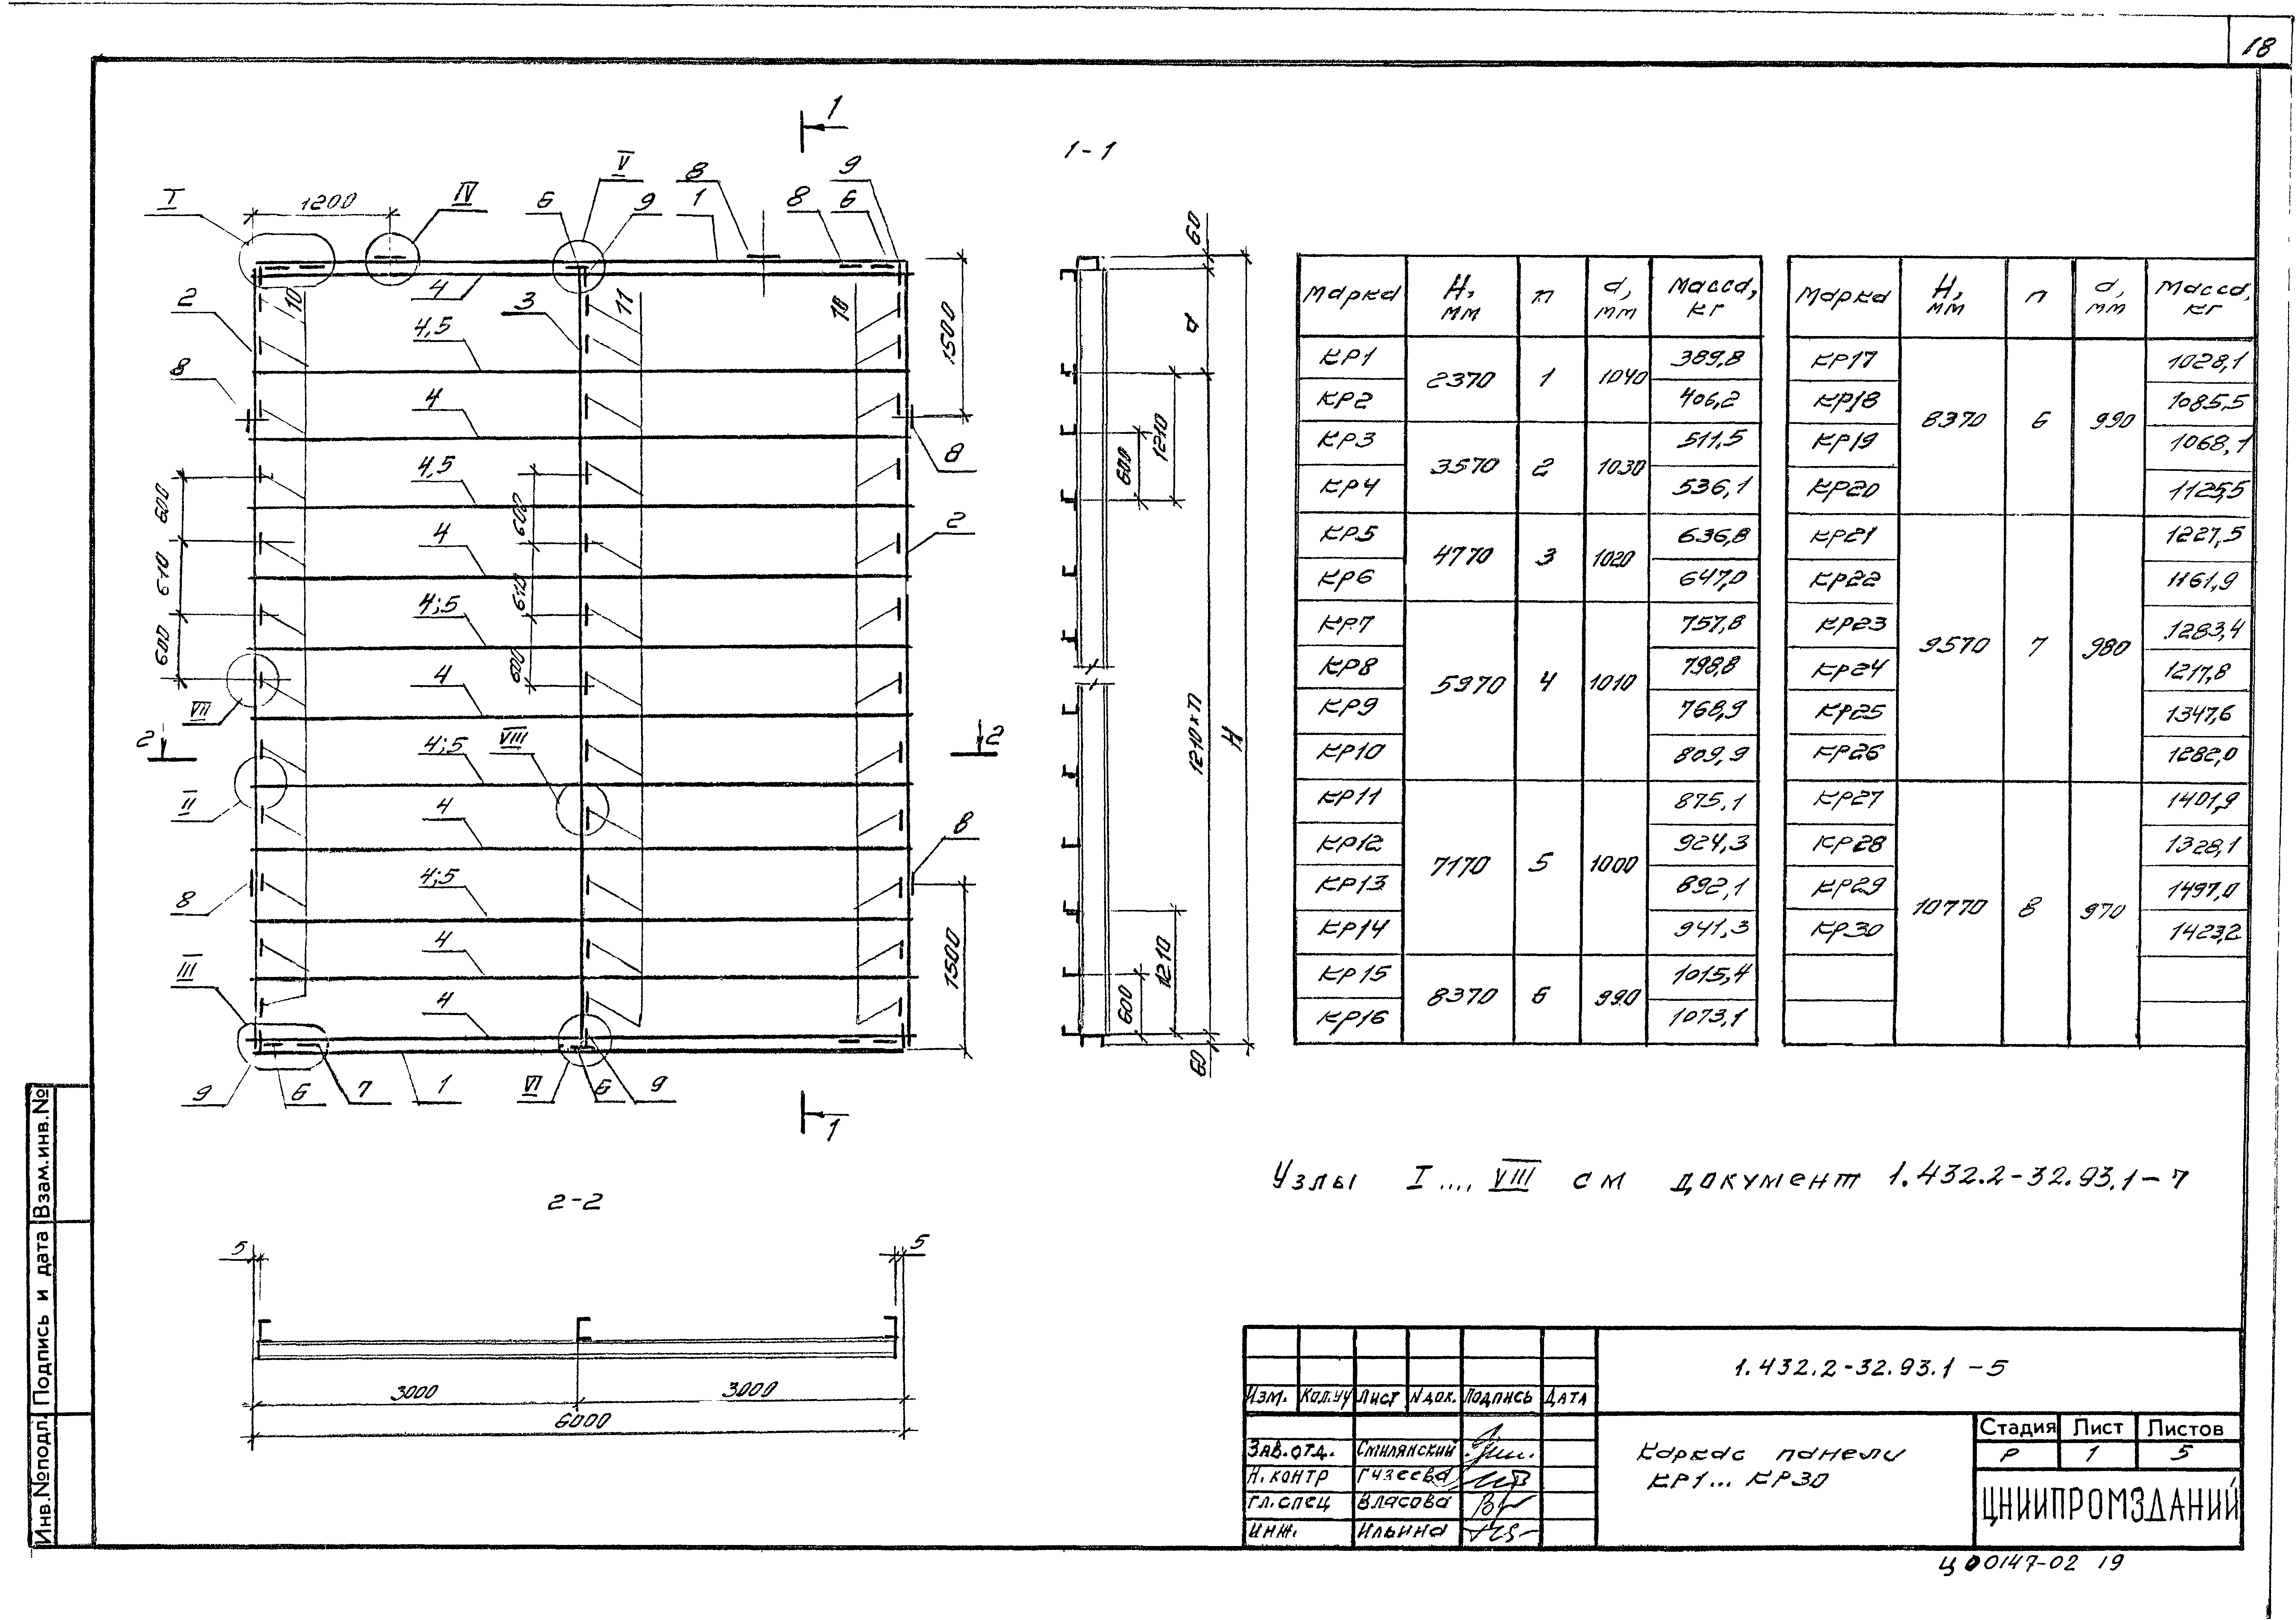 18
1
1-1
I
1200
IV
6
V
9
8
1
8
9
6
2
10
4
3
11
10
1500
4,5
8
4
8
4,5
600
610
600
4
600
610
600
2
4;5
4
VII
2
4;5
VIII
2
II
4
8
4;5
8
III
4
1500
4
9
6
7
1
VI
6
9
1
60
d
600
1210
1210×п
H
600
1210
60
Марка H, мм п d, мм Масса, кг
КР1 2370 1 1040 389,8
КР2 406,2
КР3 3570 2 1030 511,5
КР4 536,1
КР5 4770 3 1020 636,8
КР6 647,0
КР7 5970 4 1010 757,8
КР8 798,8
КР9 768,9
КР10 809,9
КР11 7170 5 1000 875,1
КР12 924,3
КР13 892,1
КР14 941,3
КР15 8370 6 990 1015,4
КР16 1073,1
Марка H, мм п d, мм Масса, кг
КР17 8370 6 990 1028,1
КР18 1085,5
КР19 1068,1
КР20 1125,5
КР21 9570 7 980 1227,5
КР22 1161,9
КР23 1283,4
КР24 1217,8
КР25 1347,6
КР26 1282,0
КР27 10770 8 970 1401,9
КР28 1328,1
КР29 1497,0
КР30 1423,2
Узлы I .... VIII см документ 1.432.2-32.93.1-7
2-2
5
5
3000
3000
6000
Инв.№подл. Подпись и дата Взам.инв.№
1.432.2-32.93.1-5
Изм. Кол.уч Лист Nдок. Подпись Дата
Зав.отд. Смилянский
Н.контр Гузеева
гл.спец Власова
инж. Ильина
Каркас панели
КР1... КР30
Стадия Лист Листов
Р 1 5
ЦНИИПРОМЗДАНИЙ
Ц00147-02 19